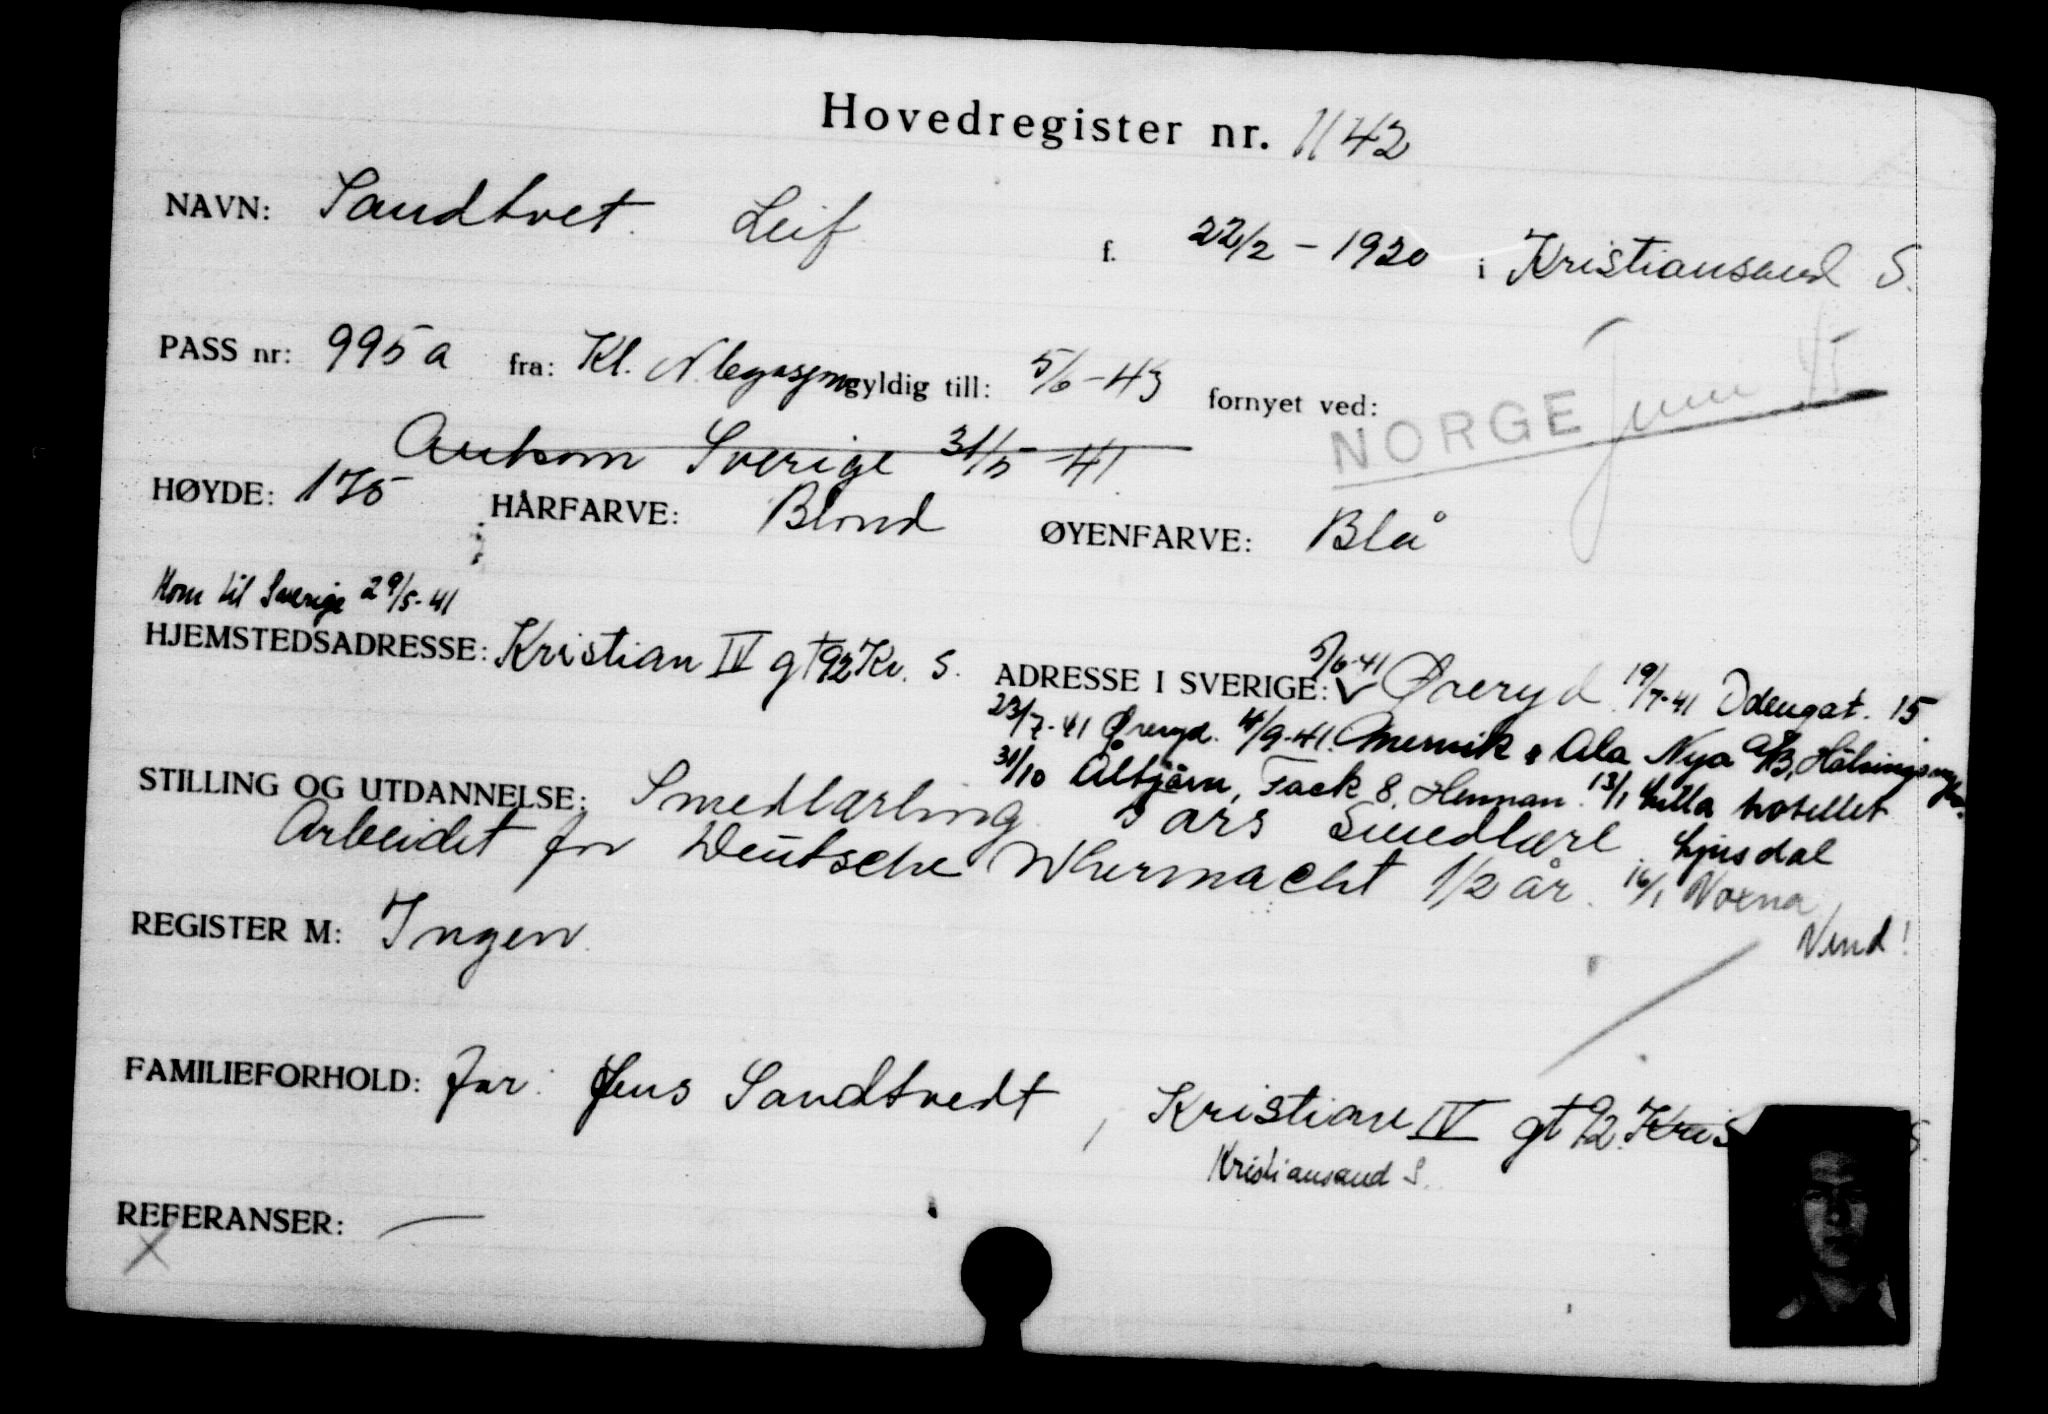 Hovedregister nr. 1142
NAVN: Sandtvet. Leif f. 22/2 - 1920 i Kristiansand S.
PASS nr: 995a fra: Kl. N. legasjon gyldig till: 5/6 - 43 fornyet ved:
NORGE Juni 45
Ankom Sverige 31/5 - 41
HØYDE: 175 HÅRFARVE: Blond ØYENFARVE: Blå
Kom til Sverige 29/5 - 41
HJEMSTEDSADRESSE: Kristian IV gt 92 Kr. S.
ADRESSE I SVERIGE: 5/6-41 Øreryd 19/7-41 Odengat. 15
23/7-41 Øreryd. 4/9-41. Ala Nya A/B,
31/10 Åltjärn, Fack 8, Hennan. 13/1 Lilla hotellet
Ljusdal
16/1 Voxna
Vend!
STILLING OG UTDANNELSE: Smedlærling 3 års Smedlære
Arbeidet for Deutsche Whermacht 1/2 år.
REGISTER M: Ingen
FAMILIEFORHOLD: far: Jens Sandtvedt, Kristian IV gt 92. Kris S.
Kristiansand S.
REFERANSER: —
X